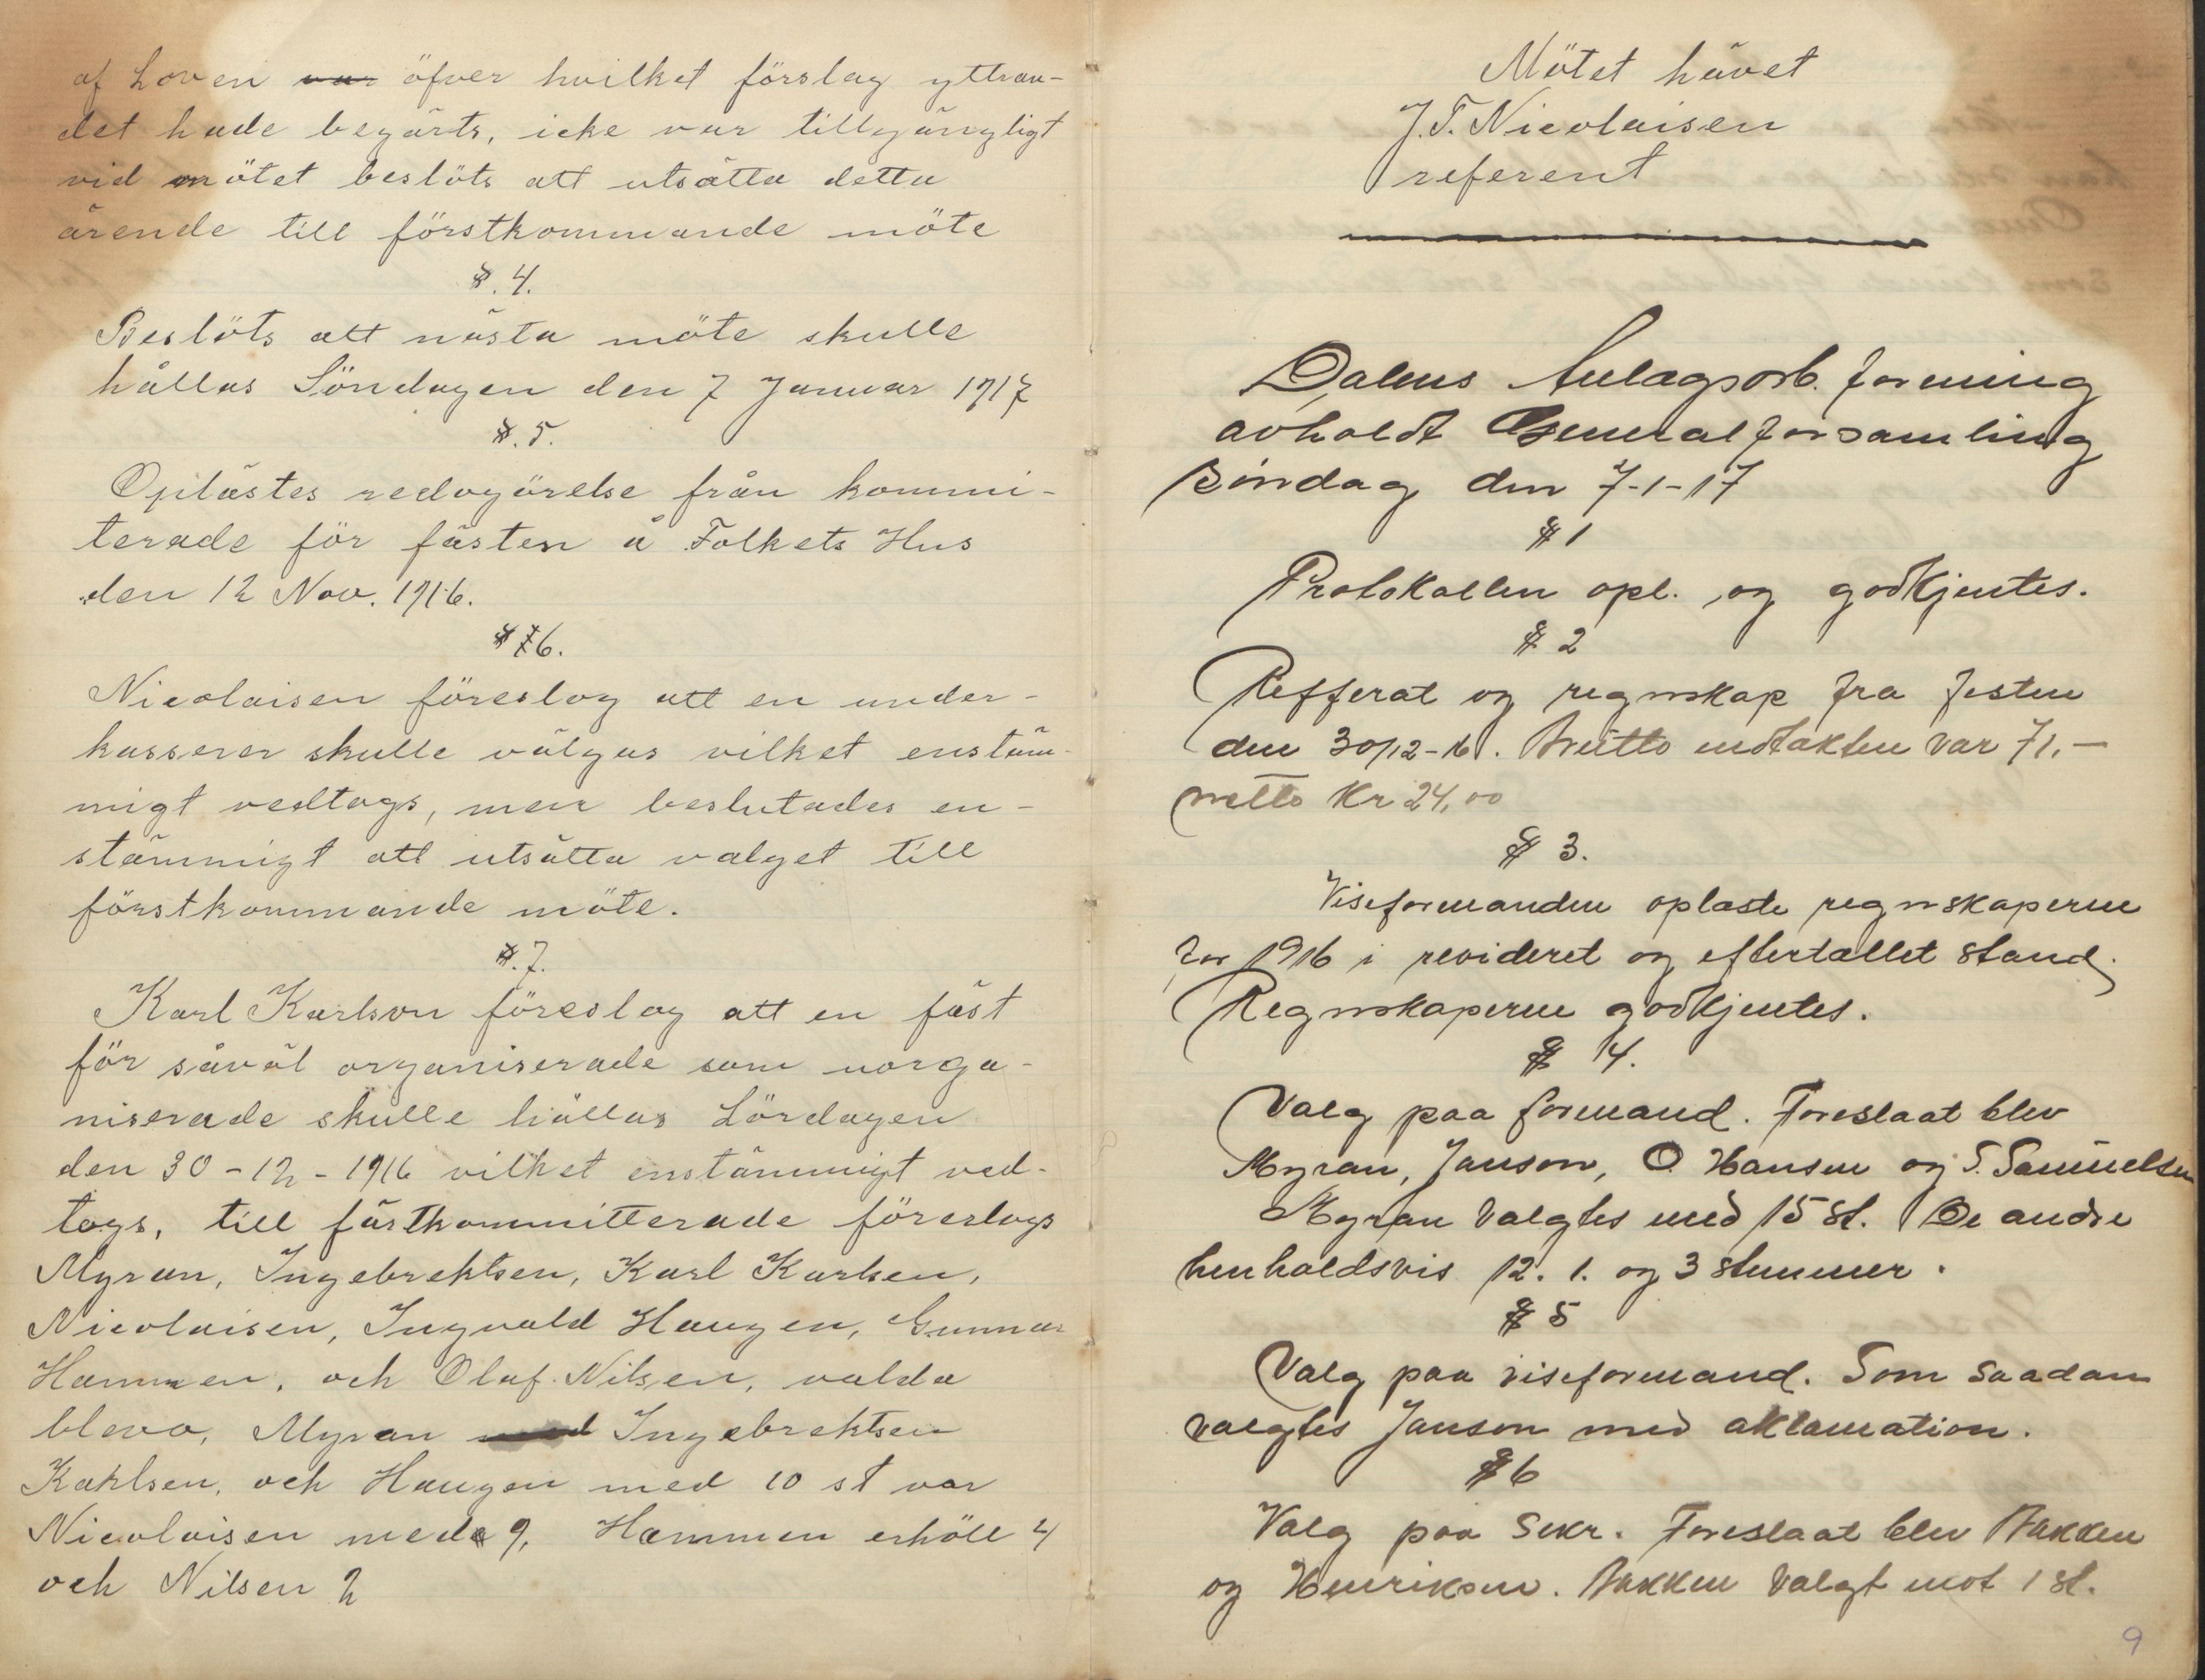 af Loven var öfver hvilket förslag yttran-
det hade begärts, icke var tillgängligt
vid mötet beslöts att utsätta detta
ärende till förstkommande möte
§. 4.
Beslöts att nästa möte skulle
hållas Söndagen den 7 Januar 1917
§. 5.
Oplästes redogörelse från kommi-
terade för fästen å Folkets Hus
den 12 Nov. 1916.
§ 6.
Nicolaisen föreslog att en under-
kasserer skulle välgas vilket enstäm-
migt vedtogs, men beslutades en-
stämmigt att utsätta valget till
förstkommande möte.
§. 7.
Karl Karlson föreslog att en fäst
för såväl organiserade som uorga-
niserade skulle hållas Lördagen
den 30-12-1916 vilket enstämmigt ved-
togs, till fästkommitterade föreslogs
Myran, Ingebrektsen, Karl Karlsen,
Nicolaisen, Ingvald Haugen, Gunnar
Hammen, och Olaf Nilsen, valda
blevo, Myran med Ingebrektsen
Kahlsen, och Haugen med 10 st var
Nicolaisen med 9, Hammen erhöll 4
och Nilsen 2
Mötet hävet
J. T. Nicolaisen
referent
Dalens Anlægsarb. forening
avholdt Generalforsamling
Söndag den 7-1-17
§ 1
Protokollen opl. og godkjentes.
§ 2
Refferat og regnskap fra festen
den 30/12-16. Brutto indtakten var 71.—
netto Kr 24,00
§ 3.
Viseformanden oplæste regnskaperne
for 1916 i revideret og eftertællet stand.
Regnskaperne godkjentes.
§ 4.
Valg paa formand. Foreslaat blev
Myran, Janson, O. Hansen og S. Samuelsen
Myran valgtes med 15 st. De andre
henholdsvis 12. 1. og 3 stemmer.
§ 5
Valg paa viseformand. Som saadan
valgtes Janson med aklamation.
§ 6
Valg paa Sekr. Foreslaat blev Bakken
og Henriksen. Bakken valgt mot 1 st.
9